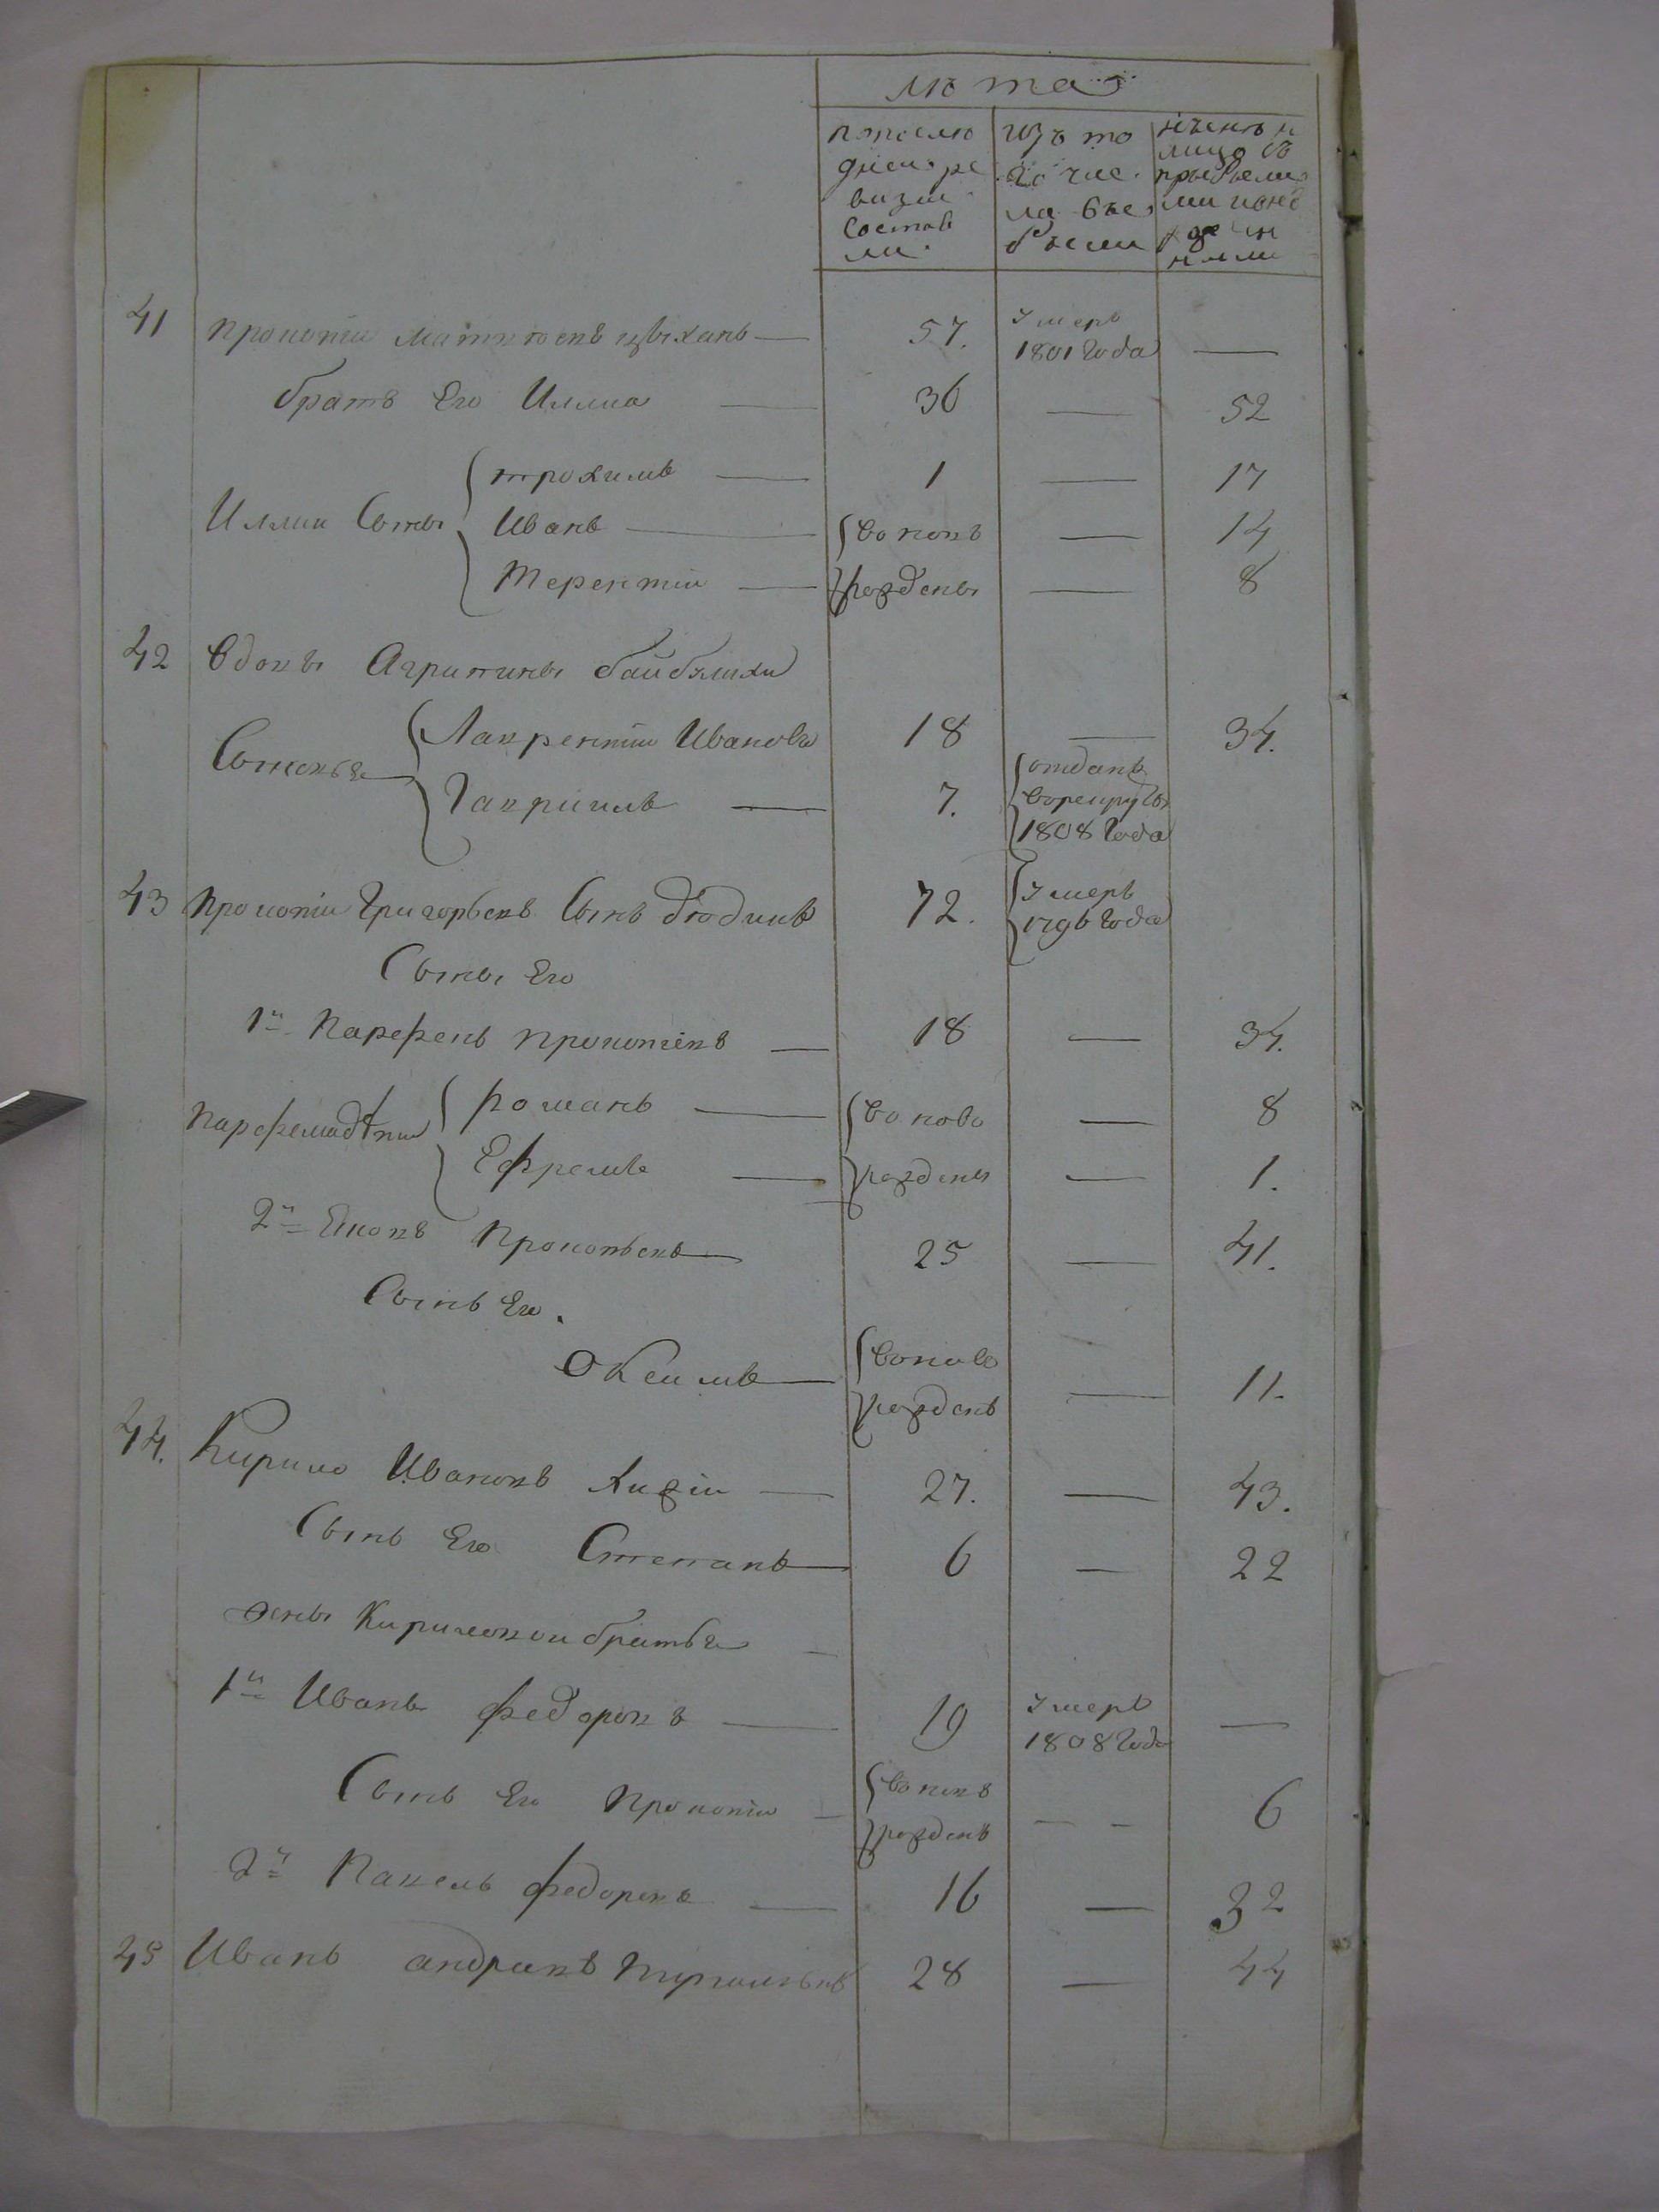 лѣта
по после
дней ре
визіи
состав
ли
изъ то
го чис
ла выб
выли
нынѣ н
лицо съ
прибыли
ми и вно
рожден
ными
41 Прокопій Матвѣевъ Цвѣхань — 57. умеръ 1801 года —
братъ Его Иллиа — 36 — 52
Иллии Сыны
трохимъ — 1 — 17
Иванъ — вновѣ — 14
Терентій — рождены — 8
42 Вдовы Агрипины байбулихи
Сыновья
Лаврентій Ивановъ 18 — 34.
Гавриилъ — 7. отданъ в рекруты 1808 года
43 Прокопій Григорьевъ Сынъ дюдинъ 72. умеръ 1796 года
Сыны Его
1й Парфенъ Прокопіевъ — 18 — 34.
Парфена дѣти
романъ — вново — 8
Ефремъ — рождены — 1.
2й Яковъ Прокопьевъ — 25 — 41.
Сынъ Его.
Якимъ — вново рожденъ — 11.
44. Кирило Ивановъ Хижій — 27. — 43.
Сынъ Его Степанъ — 6 — 22
Кириловои братья —
1й Иванъ Федоровъ — 19 умеръ 1808 года —
Сынъ Его Прокопій — вновѣ рожденъ — — 6
2й Павелъ Федоровъ — 16 — 32
45 Иванъ андреевъ 28 — 44